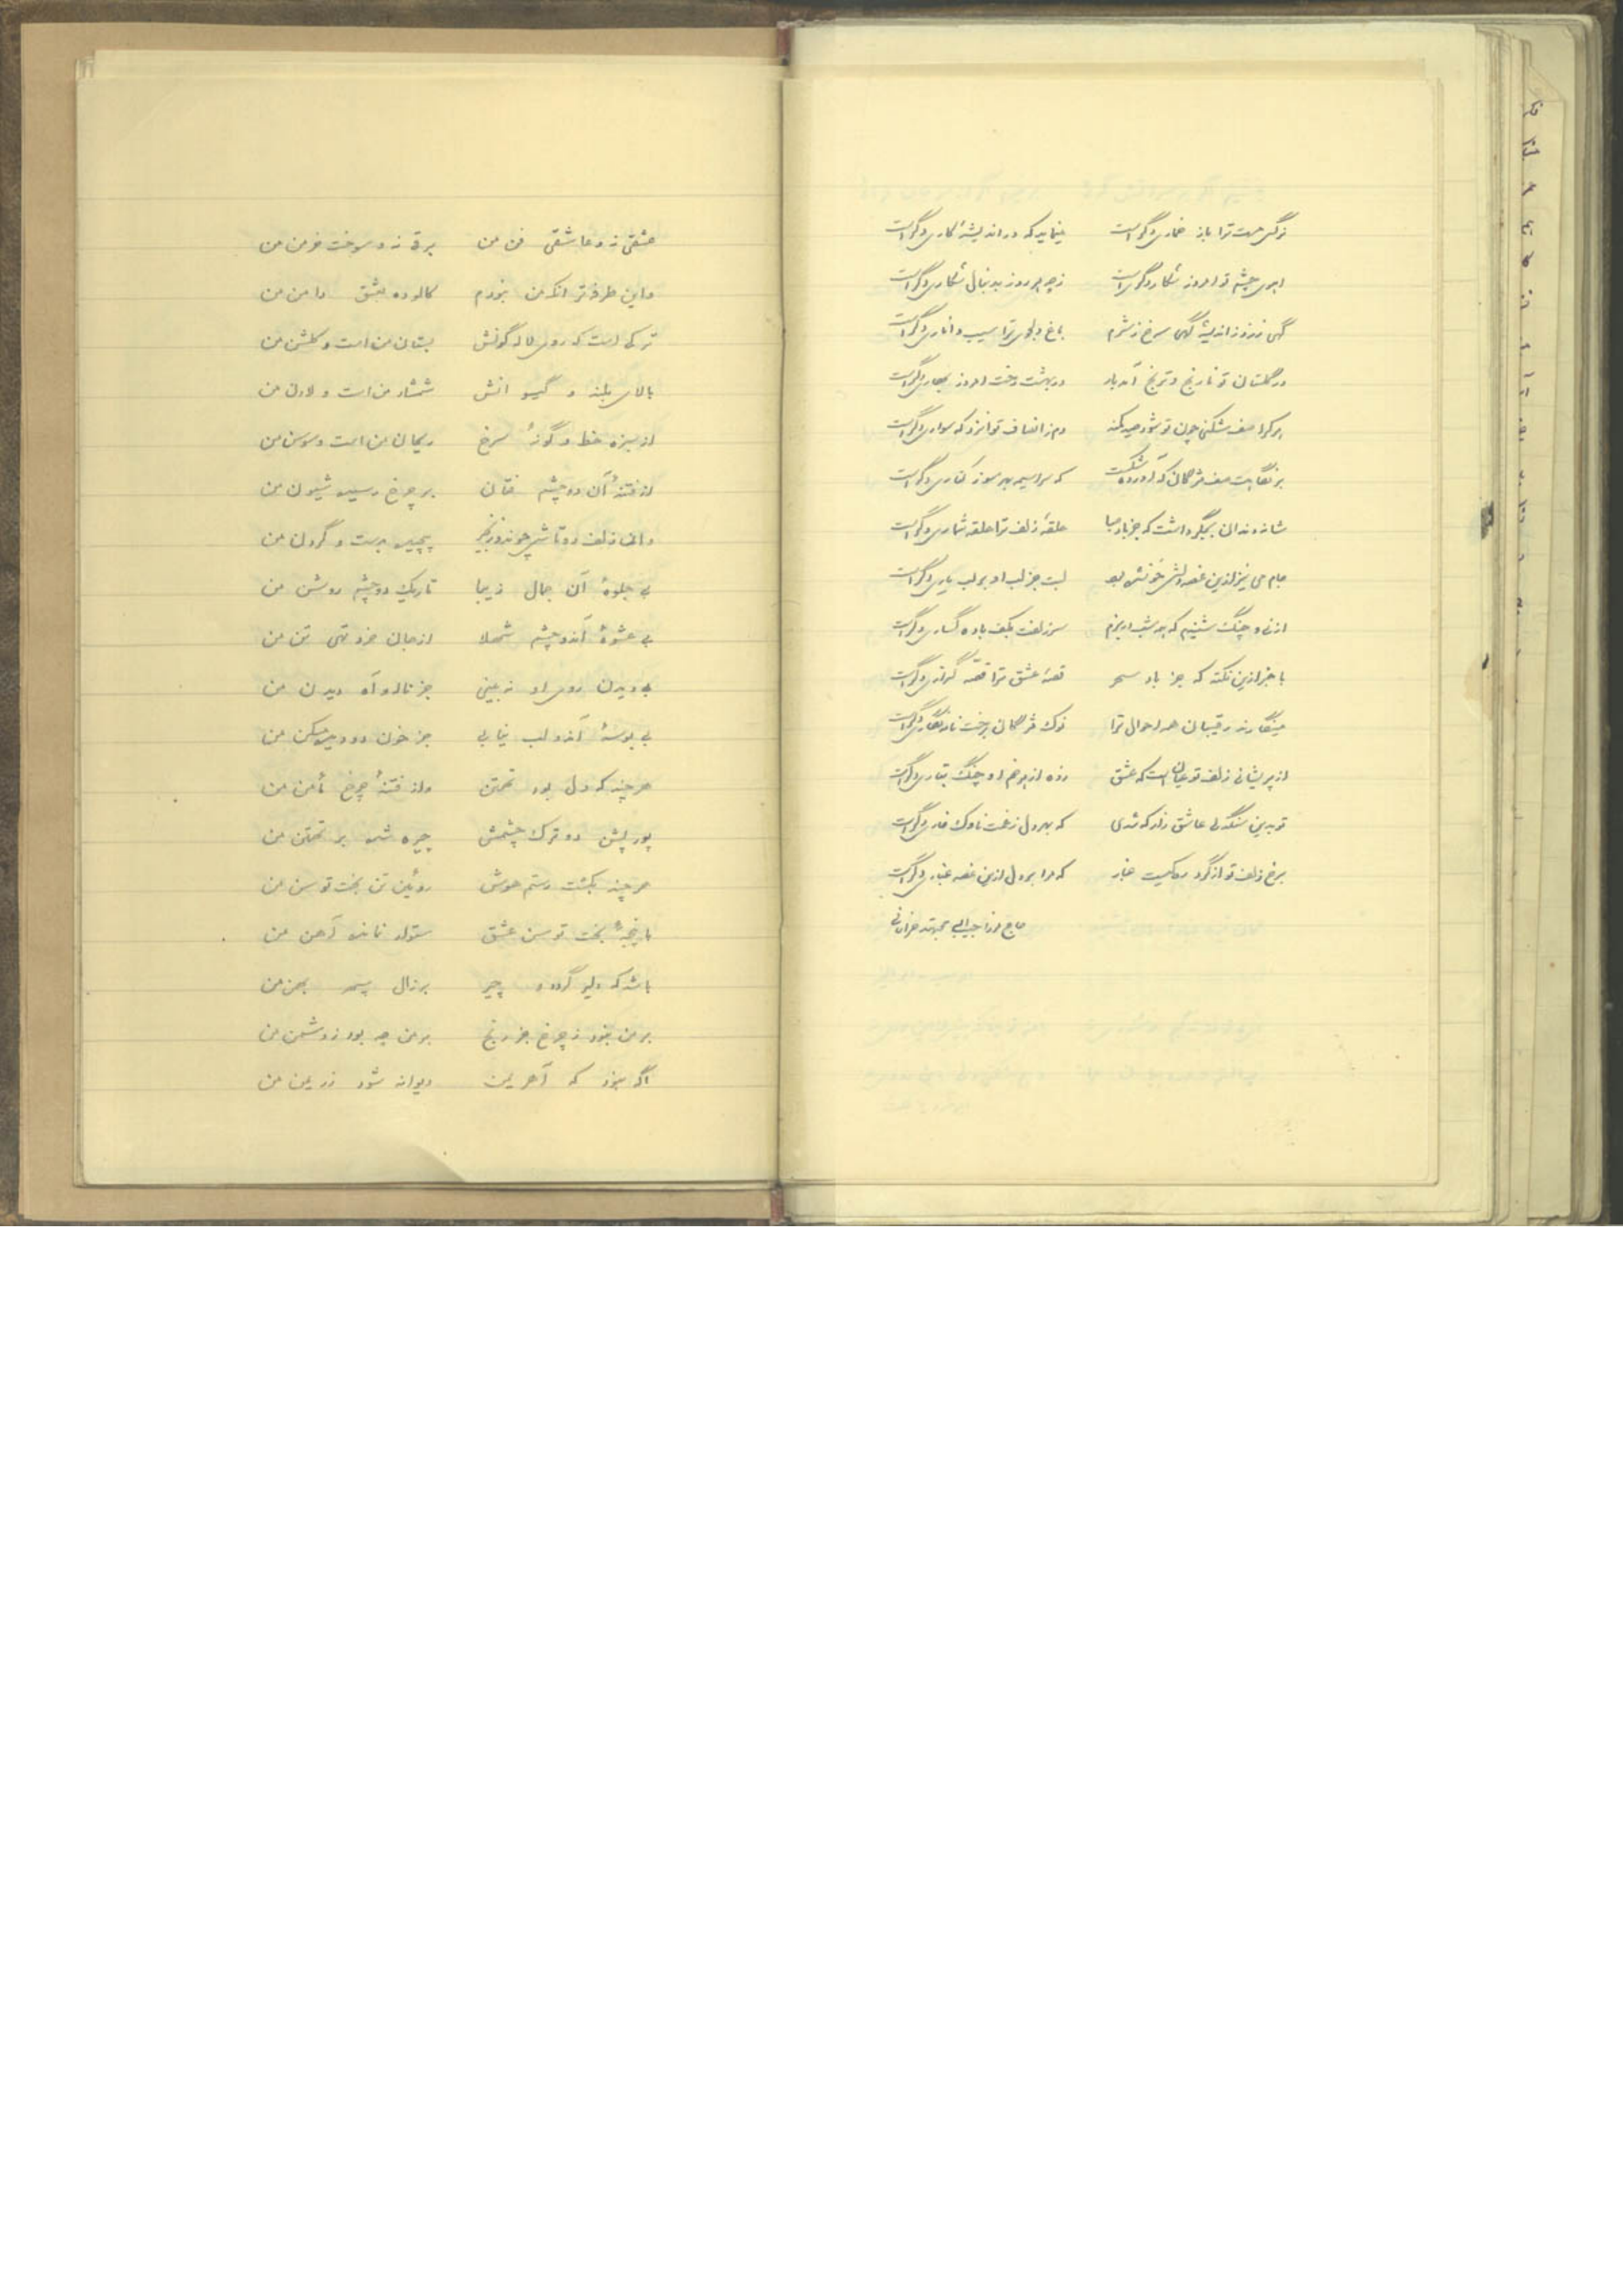 نرگس مست ترا باز خماری دگر است مینماید که در اندیشهٔ کاری دگر است
آهوی چشم تو امروز شکار دگری است زچه هر روز بدنبال شکاری دگر است
گهی زرد ز اندیشه گهی سرخ ز شرم باغ دلجوی ترا سیب و اناری دگر است
در گلستان تو نارنج و ترنج آمد بار در بهشت رخت امروز بهاری دگر است
هر کرا صف شکنی چون تو شود صید کمند دم ز انصاف تواند زد که سواری دگر است
بر نگاهت صف مژگان که آورده شکست که سراسیمه بهر سو ز کناری دگر است
شانه دندان بجگر داشت که جز باد صبا حلقهٔ زلف ترا حلقه شماری دگر است
جام می نیز ازین غصه دلش خونین بود لبت جز لب او بر لب یاری دگر است
از نی و چنگ شنیدم که هر شب در بزم سر زلفت بکف باده گساری دگر است
با خبر ازین نکته که جز باد سحر قصهٔ عشق ترا قصه گذاری دگر است
مینگارند رقیبان همه احوال ترا نوک مژگان برخت نامه نگاری دگر است
از پریشانی زلف تو عیان است که عشق زده از هر خم او چنگ بتاری دگر است
تو بدین سنگدلی عاشق زار که شدی که بهر دل ز غمت ناوک خاری دگر است
برخ زلف تو از گرد رهی نیست غبار که مرا بر دل ازین غصه غباری دگر است
حاج میرزا حبیب اله مجتهد خراسانی
عشقی زد و عاشقی فن من برقی زد و سوخت خرمن من
واین طرفه تر انکه من نبودم کالوده بعشق دامن من
ترکی است که روی لاله گونش بستان من است و گلشن من
بالای بلند و گیسوانش شمشاد من است و لادن من
از سبزه خط و گونهٔ سرخ ریحان من است و سوسن من
از فتنهٔ آن دو چشم فتان بر چرخ رسید شیون من
وان زلف دوتاش چون دو زنجیر پیچید بدست و گردن من
بی جلوهٔ آن جمال زیبا تاریک دو چشم روشن من
بی عشوهٔ آندو چشم شهلا از جان خرد تهی تن من
بی دیدن روی او نبینی جز ناله و آه دیدن من
بی بوسهٔ آندو لب نیابی جز خون دو دیده مسکن من
هر چند که دل بود تهمتن واز فتنهٔ چرخ مأمن من
پور پشن دو ترک چشمش چیره شد بر تهمتن من
هر چند بکشت رستم هوش روئین تن بخت توسن من
با پنجهٔ بخت توسن عشق ستوار نماند آهن من
باشد که دلیر گردد و چیر بر زال سپهر بهمن من
بر من نبود ز چرخ جز رنج بر من چه بود ز دشمن من
آگه نبود که آهریمن دیوانه شود ز ریمن من